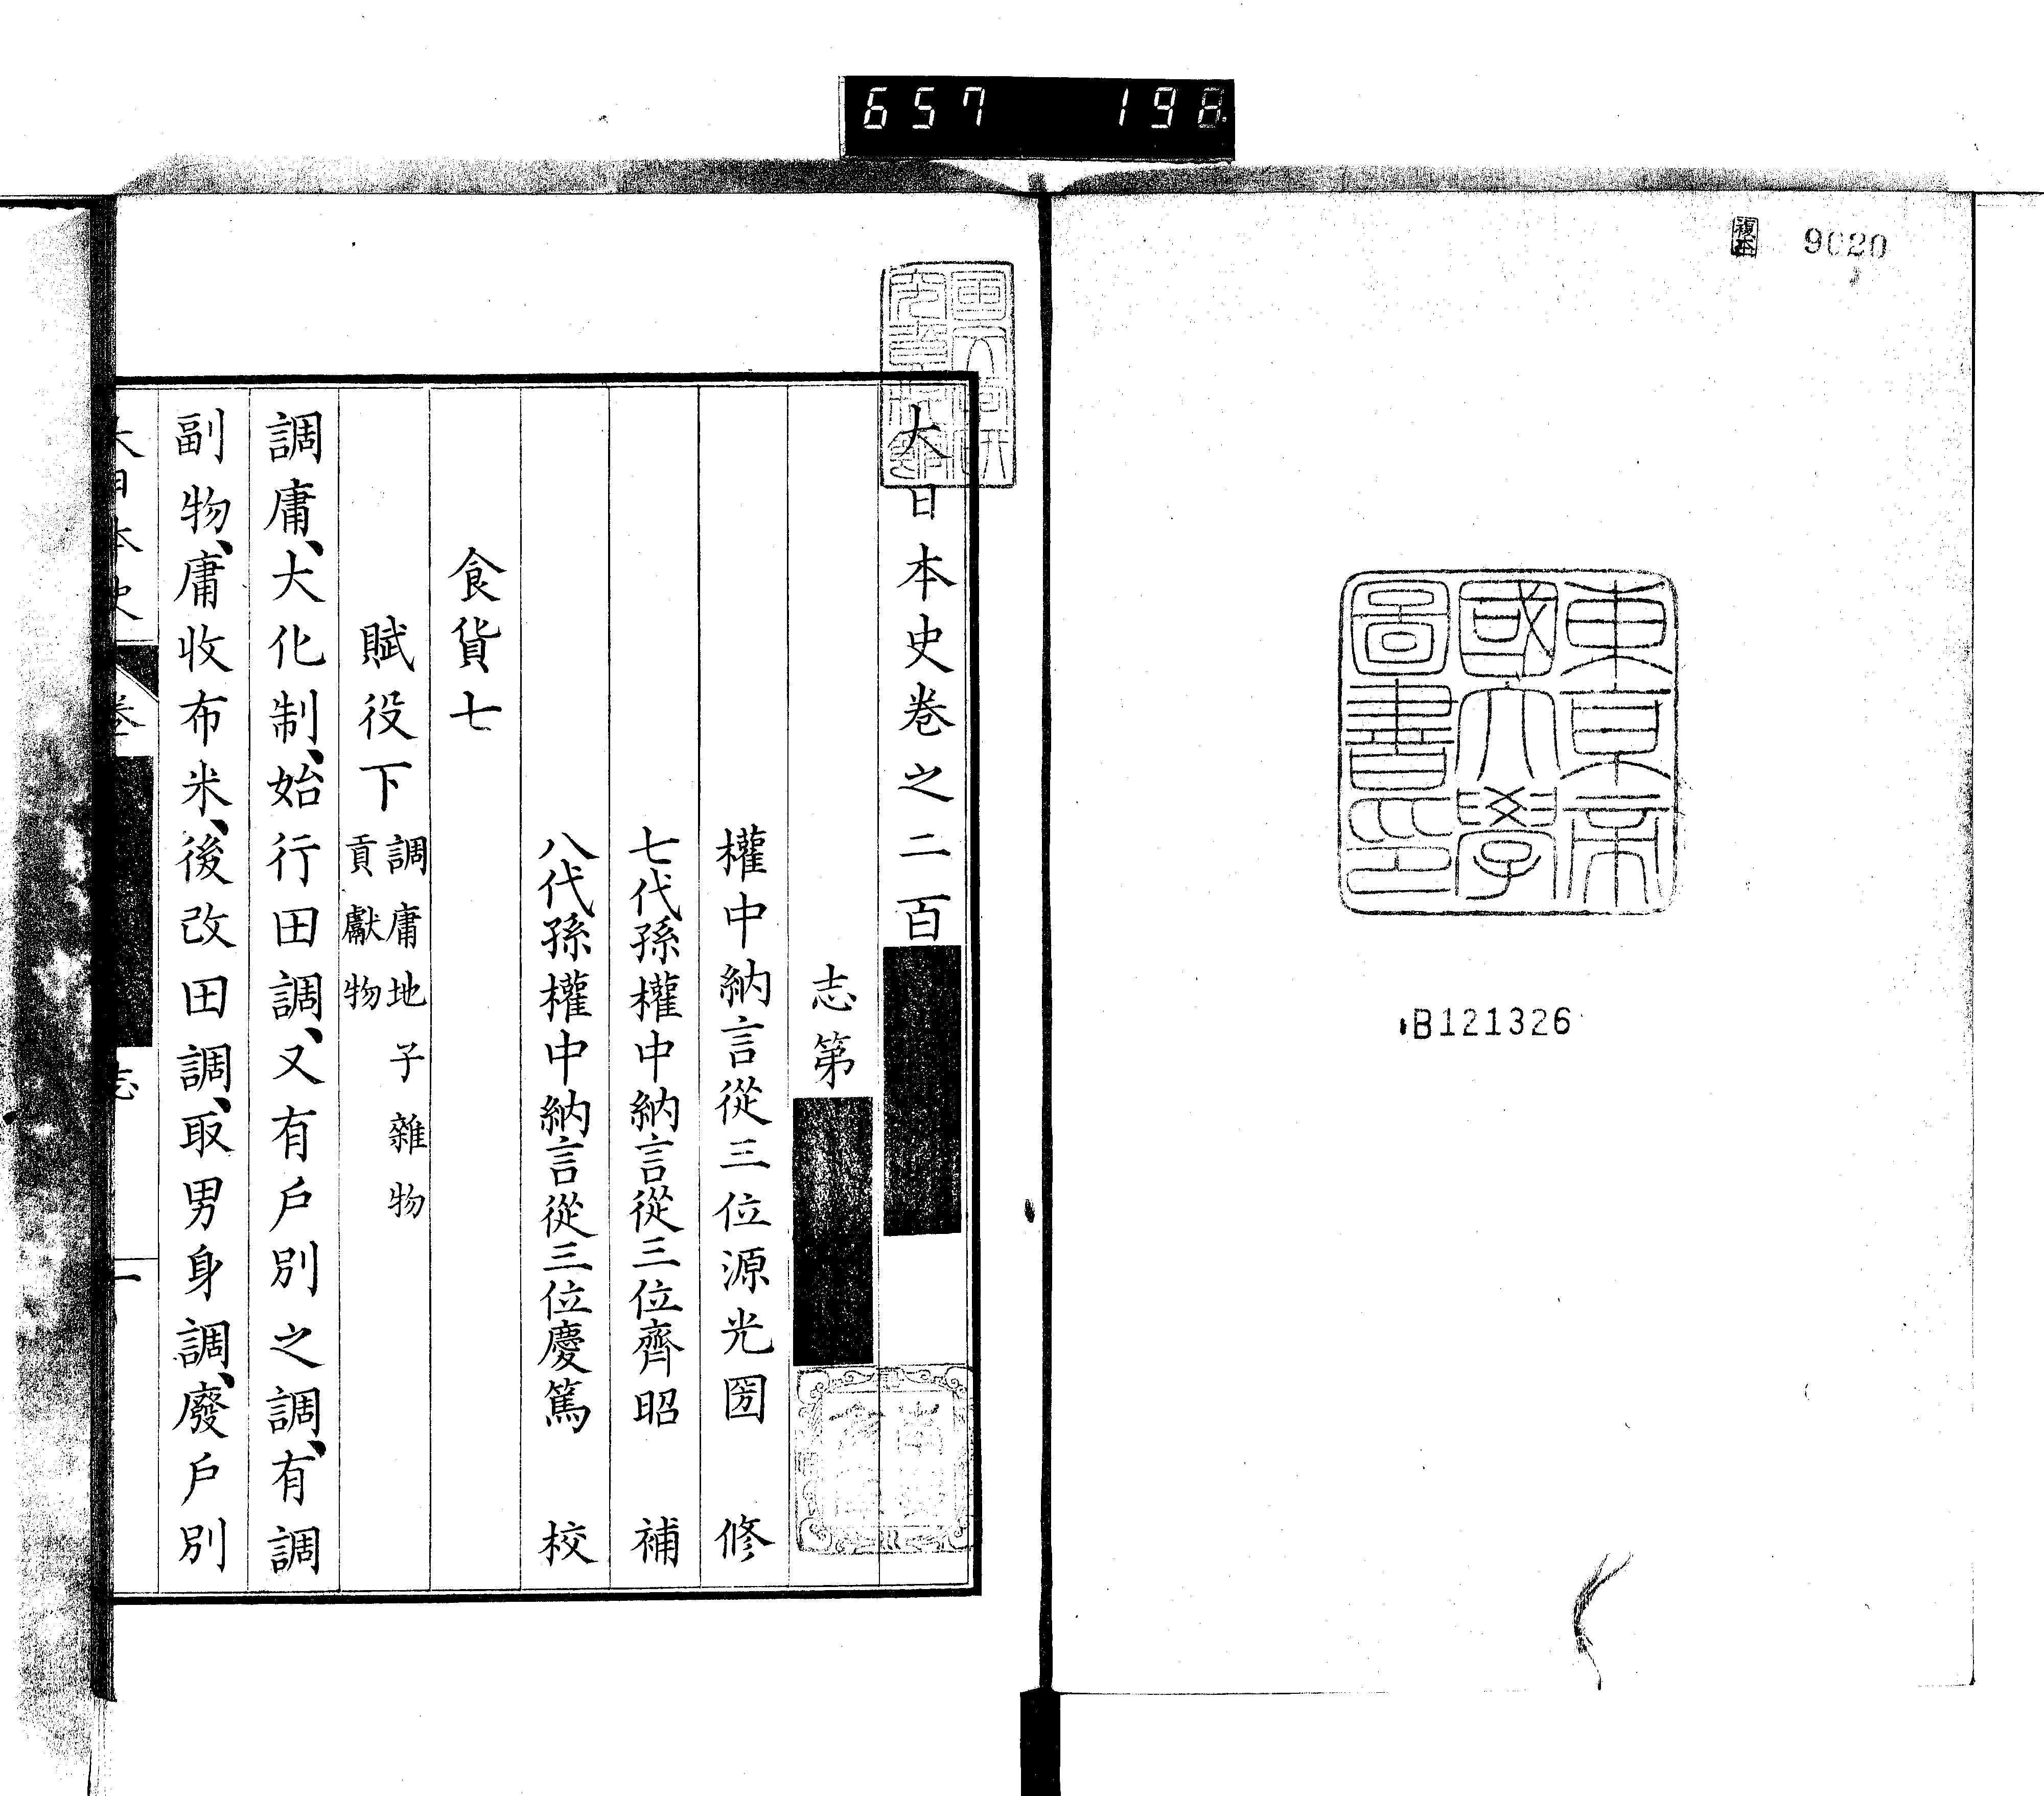 657 198
複本
9020
東京帝
國大學
圖書印
B121326
大日本史卷之二百
志第
權中納言從三位源光圀 修
七代孫權中納言從三位齊昭 補
八代孫權中納言從三位慶篤 校
食貨七
賦役下 調庸地子雜物
貢獻物
調庸、大化制、始行田調、又有戶別之調、有調
副物、庸收布米、後改田調、取男身調、廢戶別
大日本史 卷 志 一